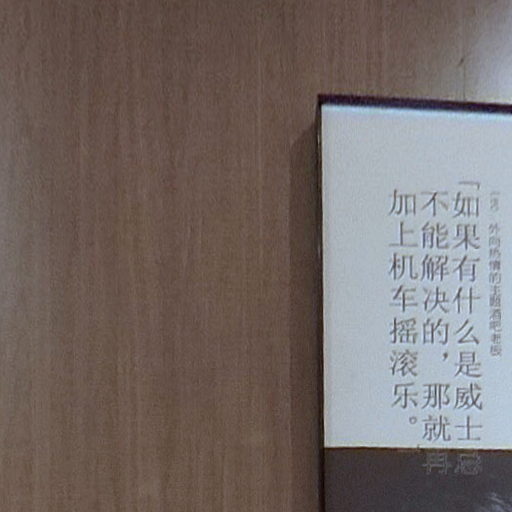 外向热情的主题酒吧老板
「如果有什么是威士忌
不能解决的，那就再
加上机车摇滚乐。」